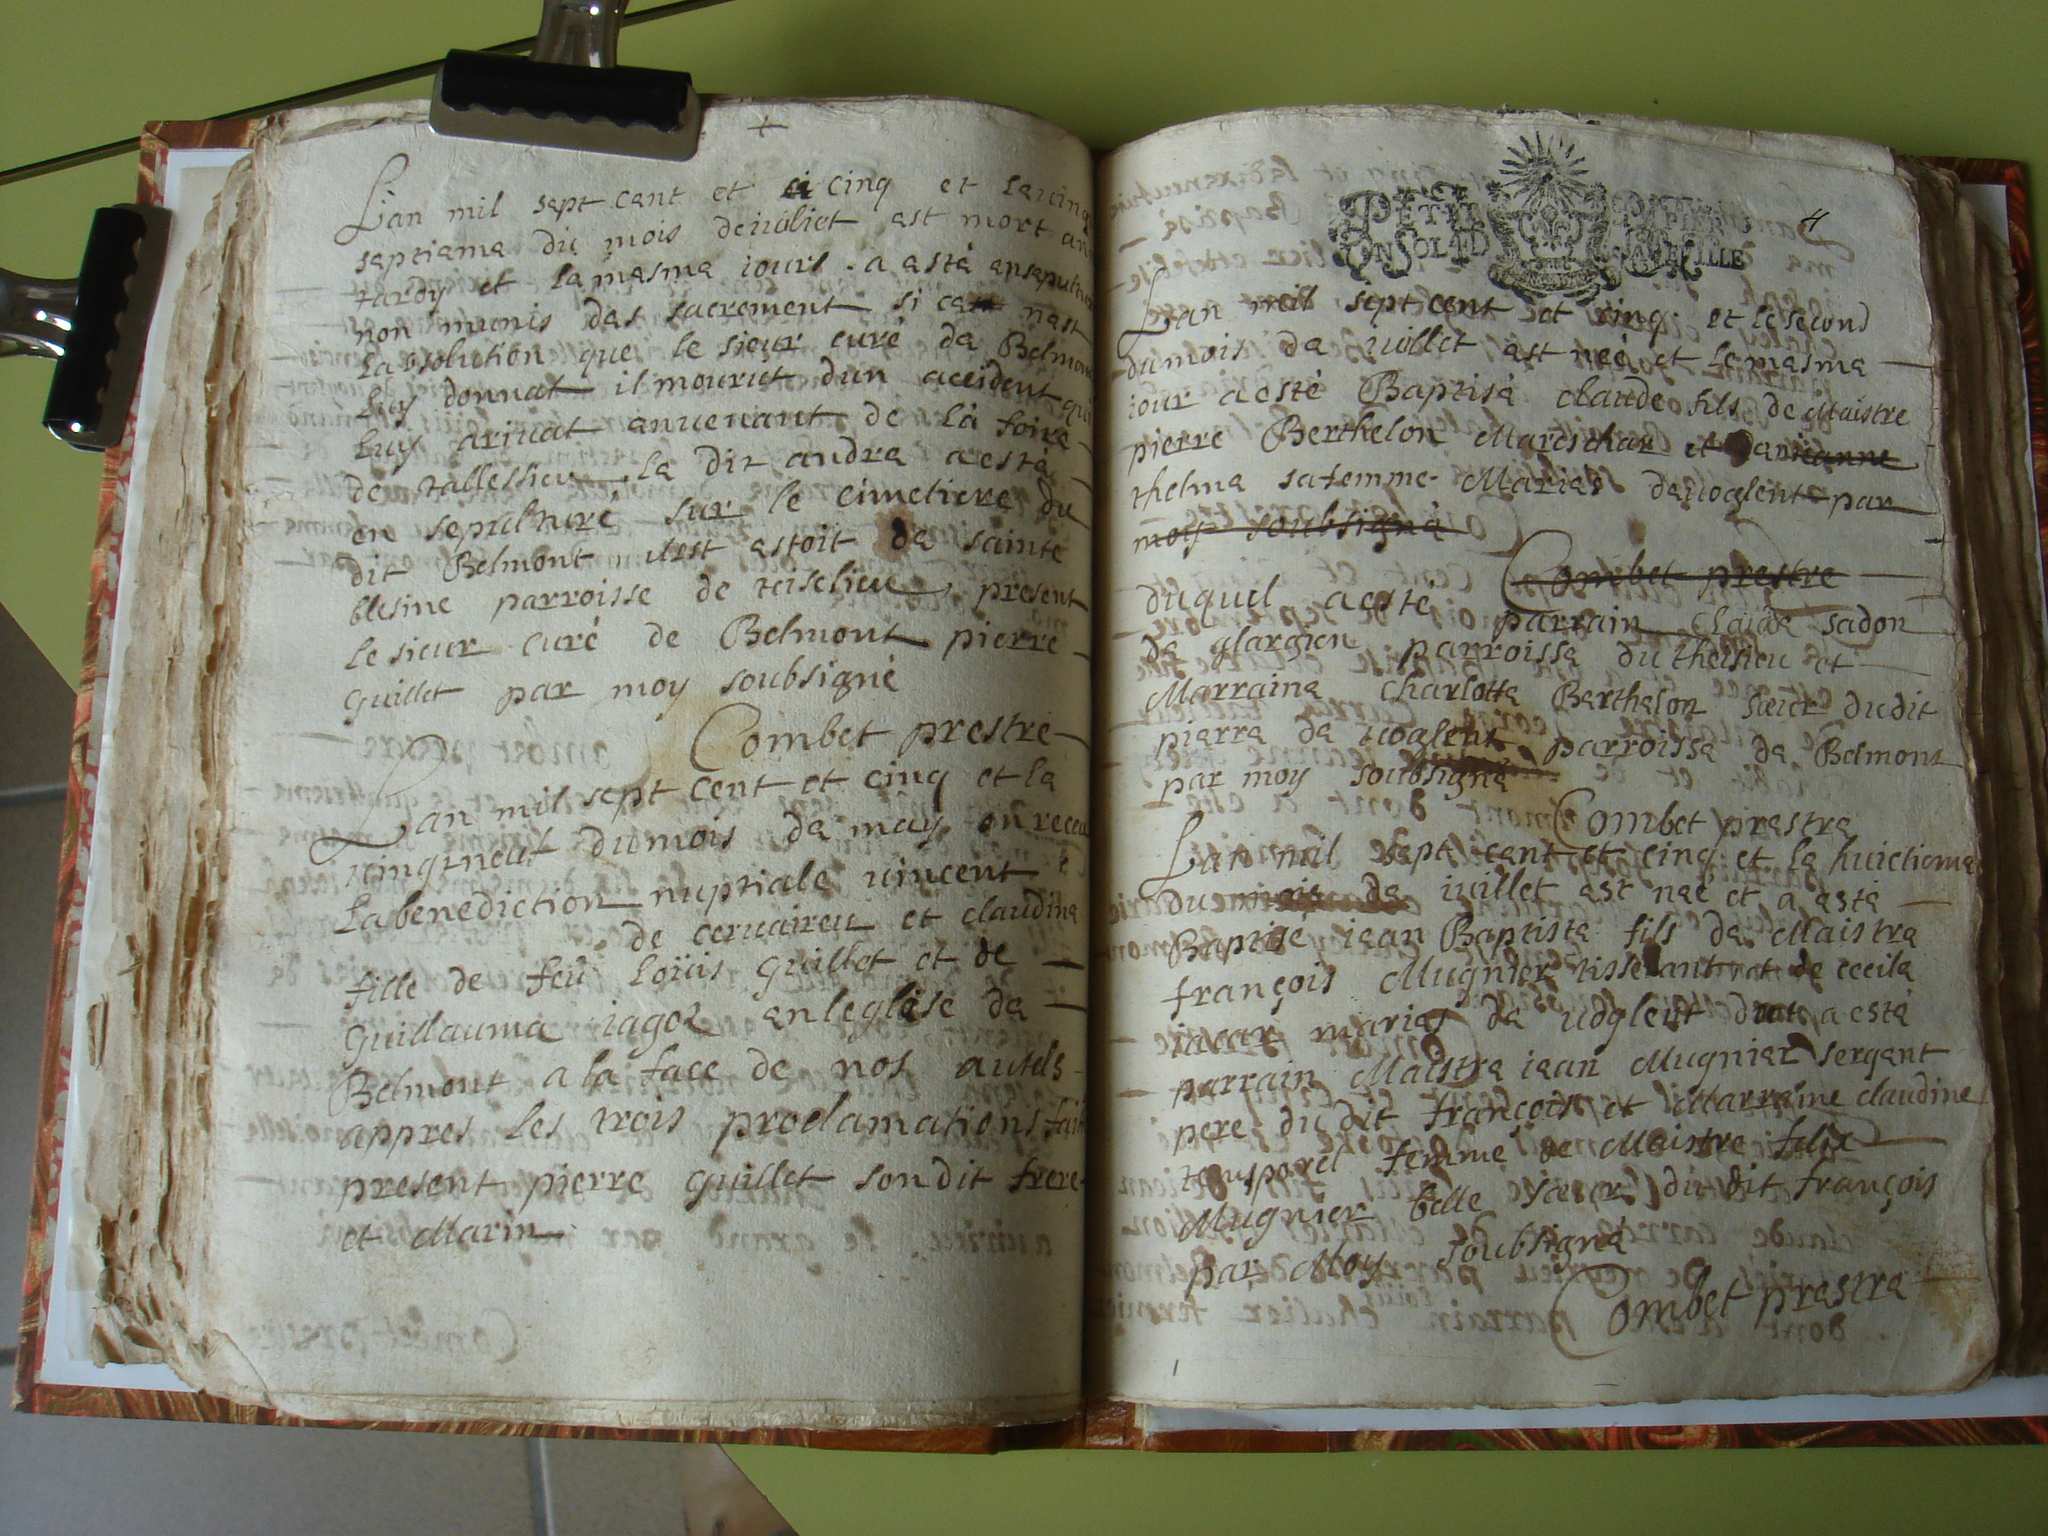 L'an mil sept cent et cinq et la cinq
septiema du mois de iuliet est mort an
tardy et la masma iour a asta ansapultur
non munis das sacrement si ce nast
labsolution que le sieur curé da Belmont
luy donnat il mourut dun accident qui
luy arivat anvenant de la foire
de tallessieu la dit andra a esta
en sepulturé sur le cimetiere du
dit Belmont il est astoit da sainte
blesine parroisse de teiselieu present
le sieur curé de Belmont pierre
Guillet par moy soubsigné
Combet prestre
L'an mil sept cent et cinq et la
vingtneuf du mois da may on receu
la benediction nuptiale vincent
de cervaireu et claudina
fille de feu Loüis Guillet et de
Guillauma iagoz anleglese da
Belmont a la face de nos autels
appres les trois proclamations fait
present pierre Guillet son dit frere
et Marin
PETIT PAPIER
UN SOL LE D FEUILLE
4
L'an mil sept cent et cinq et le second
du mois da iuillet ast neé et le masma
iour a esté Baptisá claude fils de Maistre
pierre Berthelon Mareschar et
thelma sa femme Mariés da voglent par
moy soubsigná
Combet prestre
duquel a esté parrain Claude sadon
da glargieu parroissa du theisieu et
Marraina charlotta Berthelon sœur du dit
piarra da voglent parroissa da Belmont
par moy soubsigná
Combet prastra
L'an mil sept cant et cinq et la huictiema
du mois da iuillet ast naé et a asta
Baptise iaan Baptista fils da Maistra
françois Mugnier tisserant et de cecila
iacar mariaś da voglent dont a esta
parrain Maistra iean Mugniar sergant
pere du dit françois et Marraine claudine
femme de Maistre felix
Mugnier belle sœur du dit françois
par Moy soubsigná
Combet prastra